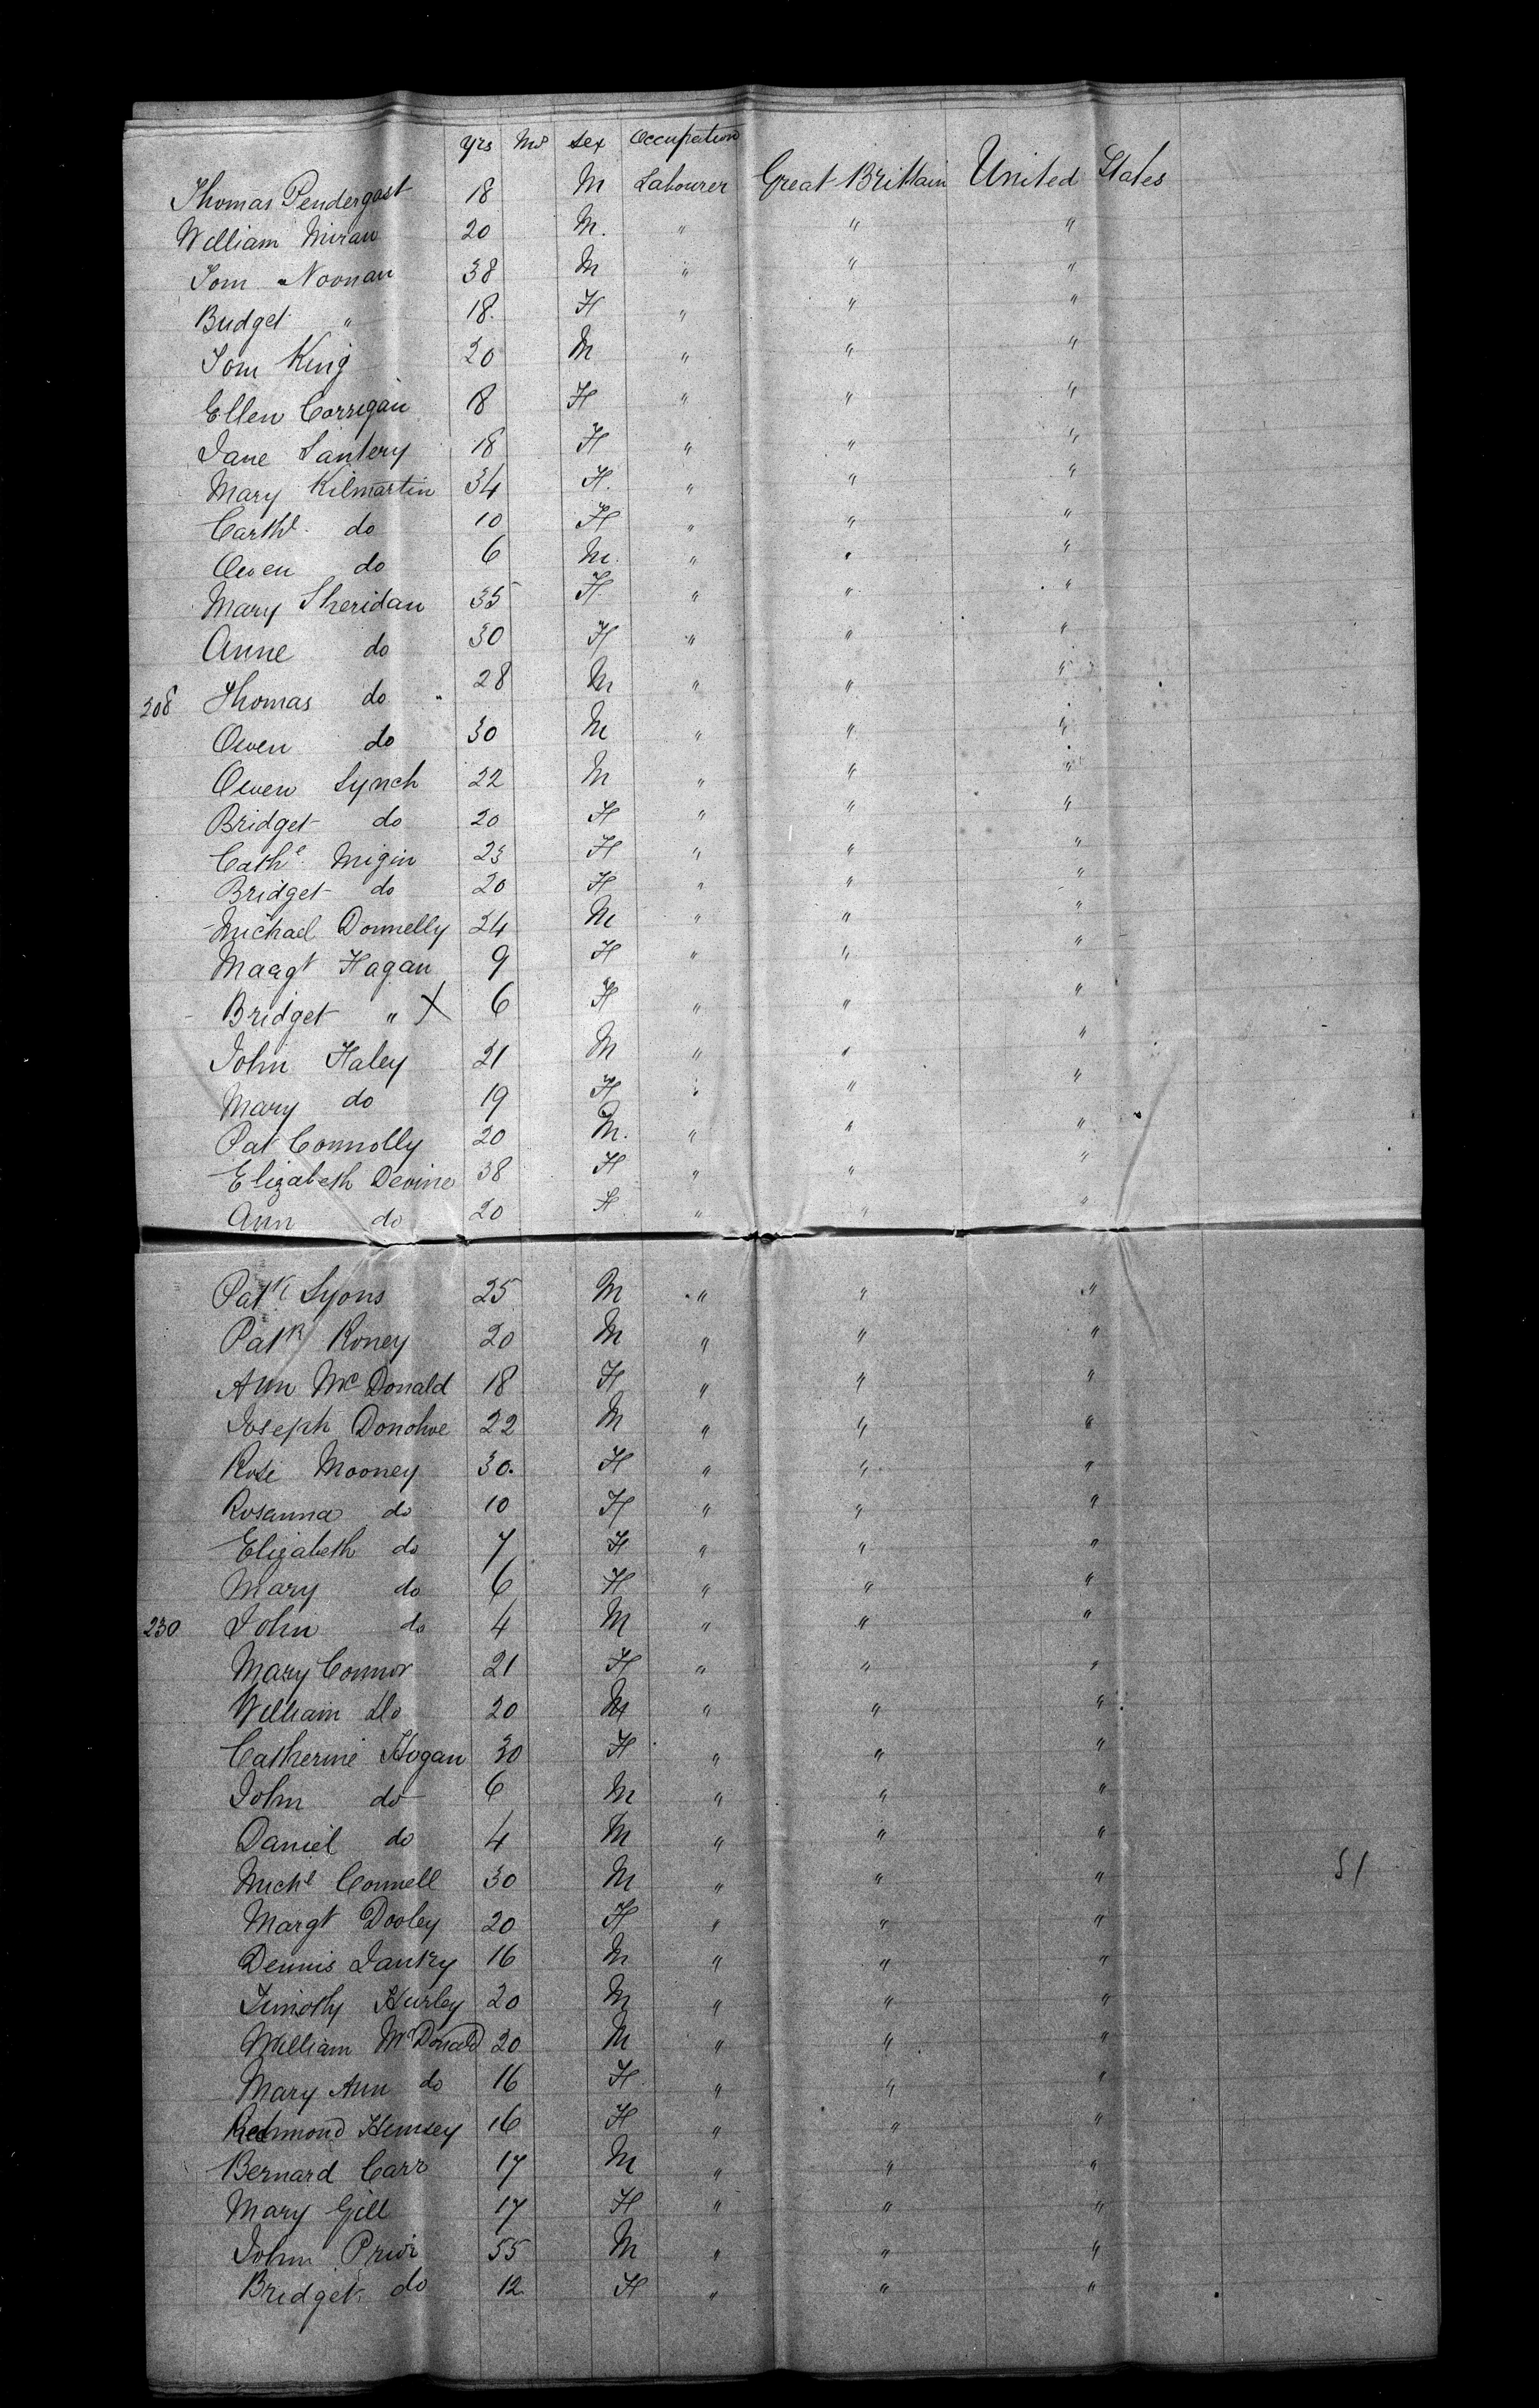 yrs Mos sex Occupation
Thomas Pendergast 18 M Labourer Great Brittain United States
William Miran 20 M. " " "
Tom Noonan 38 M " " "
Budget " 18. F " " "
Tom King 20 M " " "
Ellen Corrigan 18 F " " "
Jane Lantery 18 F " " "
Mary Kilmartin 34 F. " " "
Carthe. do 10 F " " "
Owen do 6 M. " " "
Mary Sheridan 35 F " " "
Anne do 30 F " " "
208 Thomas do 28 M " " "
Owen do 30 M " " "
Owen Lynch 22 M " " "
Bridget do 20 F " " "
Cathe. Migin 23 F " " "
Bridget do 20 F " " "
Michael Donnelly 24 M " " "
Maagt Hagan 9 F " " "
Bridget " X 6 F " " "
John Haley 21 M " " "
Mary do 19 F " " "
Pat Connolly 20 M. " " "
Elizabeth Devine 38 F " " "
Ann do 20 F " " "
Patk Lyons 25 M " " "
Patk Roney 20 M " " "
Ann McDonald 18 F " " "
Joseph Donohoe 22 M " " "
Rose Mooney 30. F " " "
Rosanna do 10 F " " "
Elizabeth do 7 F " " "
Mary do 6 F " " "
230 John do 4 M " " "
Mary Connor 21 F " " "
William Do 20 M " " "
Catherine Hogan 30 F " " "
John do 6 M " " "
Daniel do 4 M " " "
Michl Connell 30 M " " "
51
Margt Dooley 20 F " " "
Dennis 16 M " " "
Timothy Hurley 20 M " " "
William McDonald 20 M " " "
Mary Ann do 16 F " " "
Redmond 16 F " " "
Bernard Carr 17 M " " "
Mary Gill 17 F " " "
John Prior 55 M " " "
Bridget do 12 F " " "